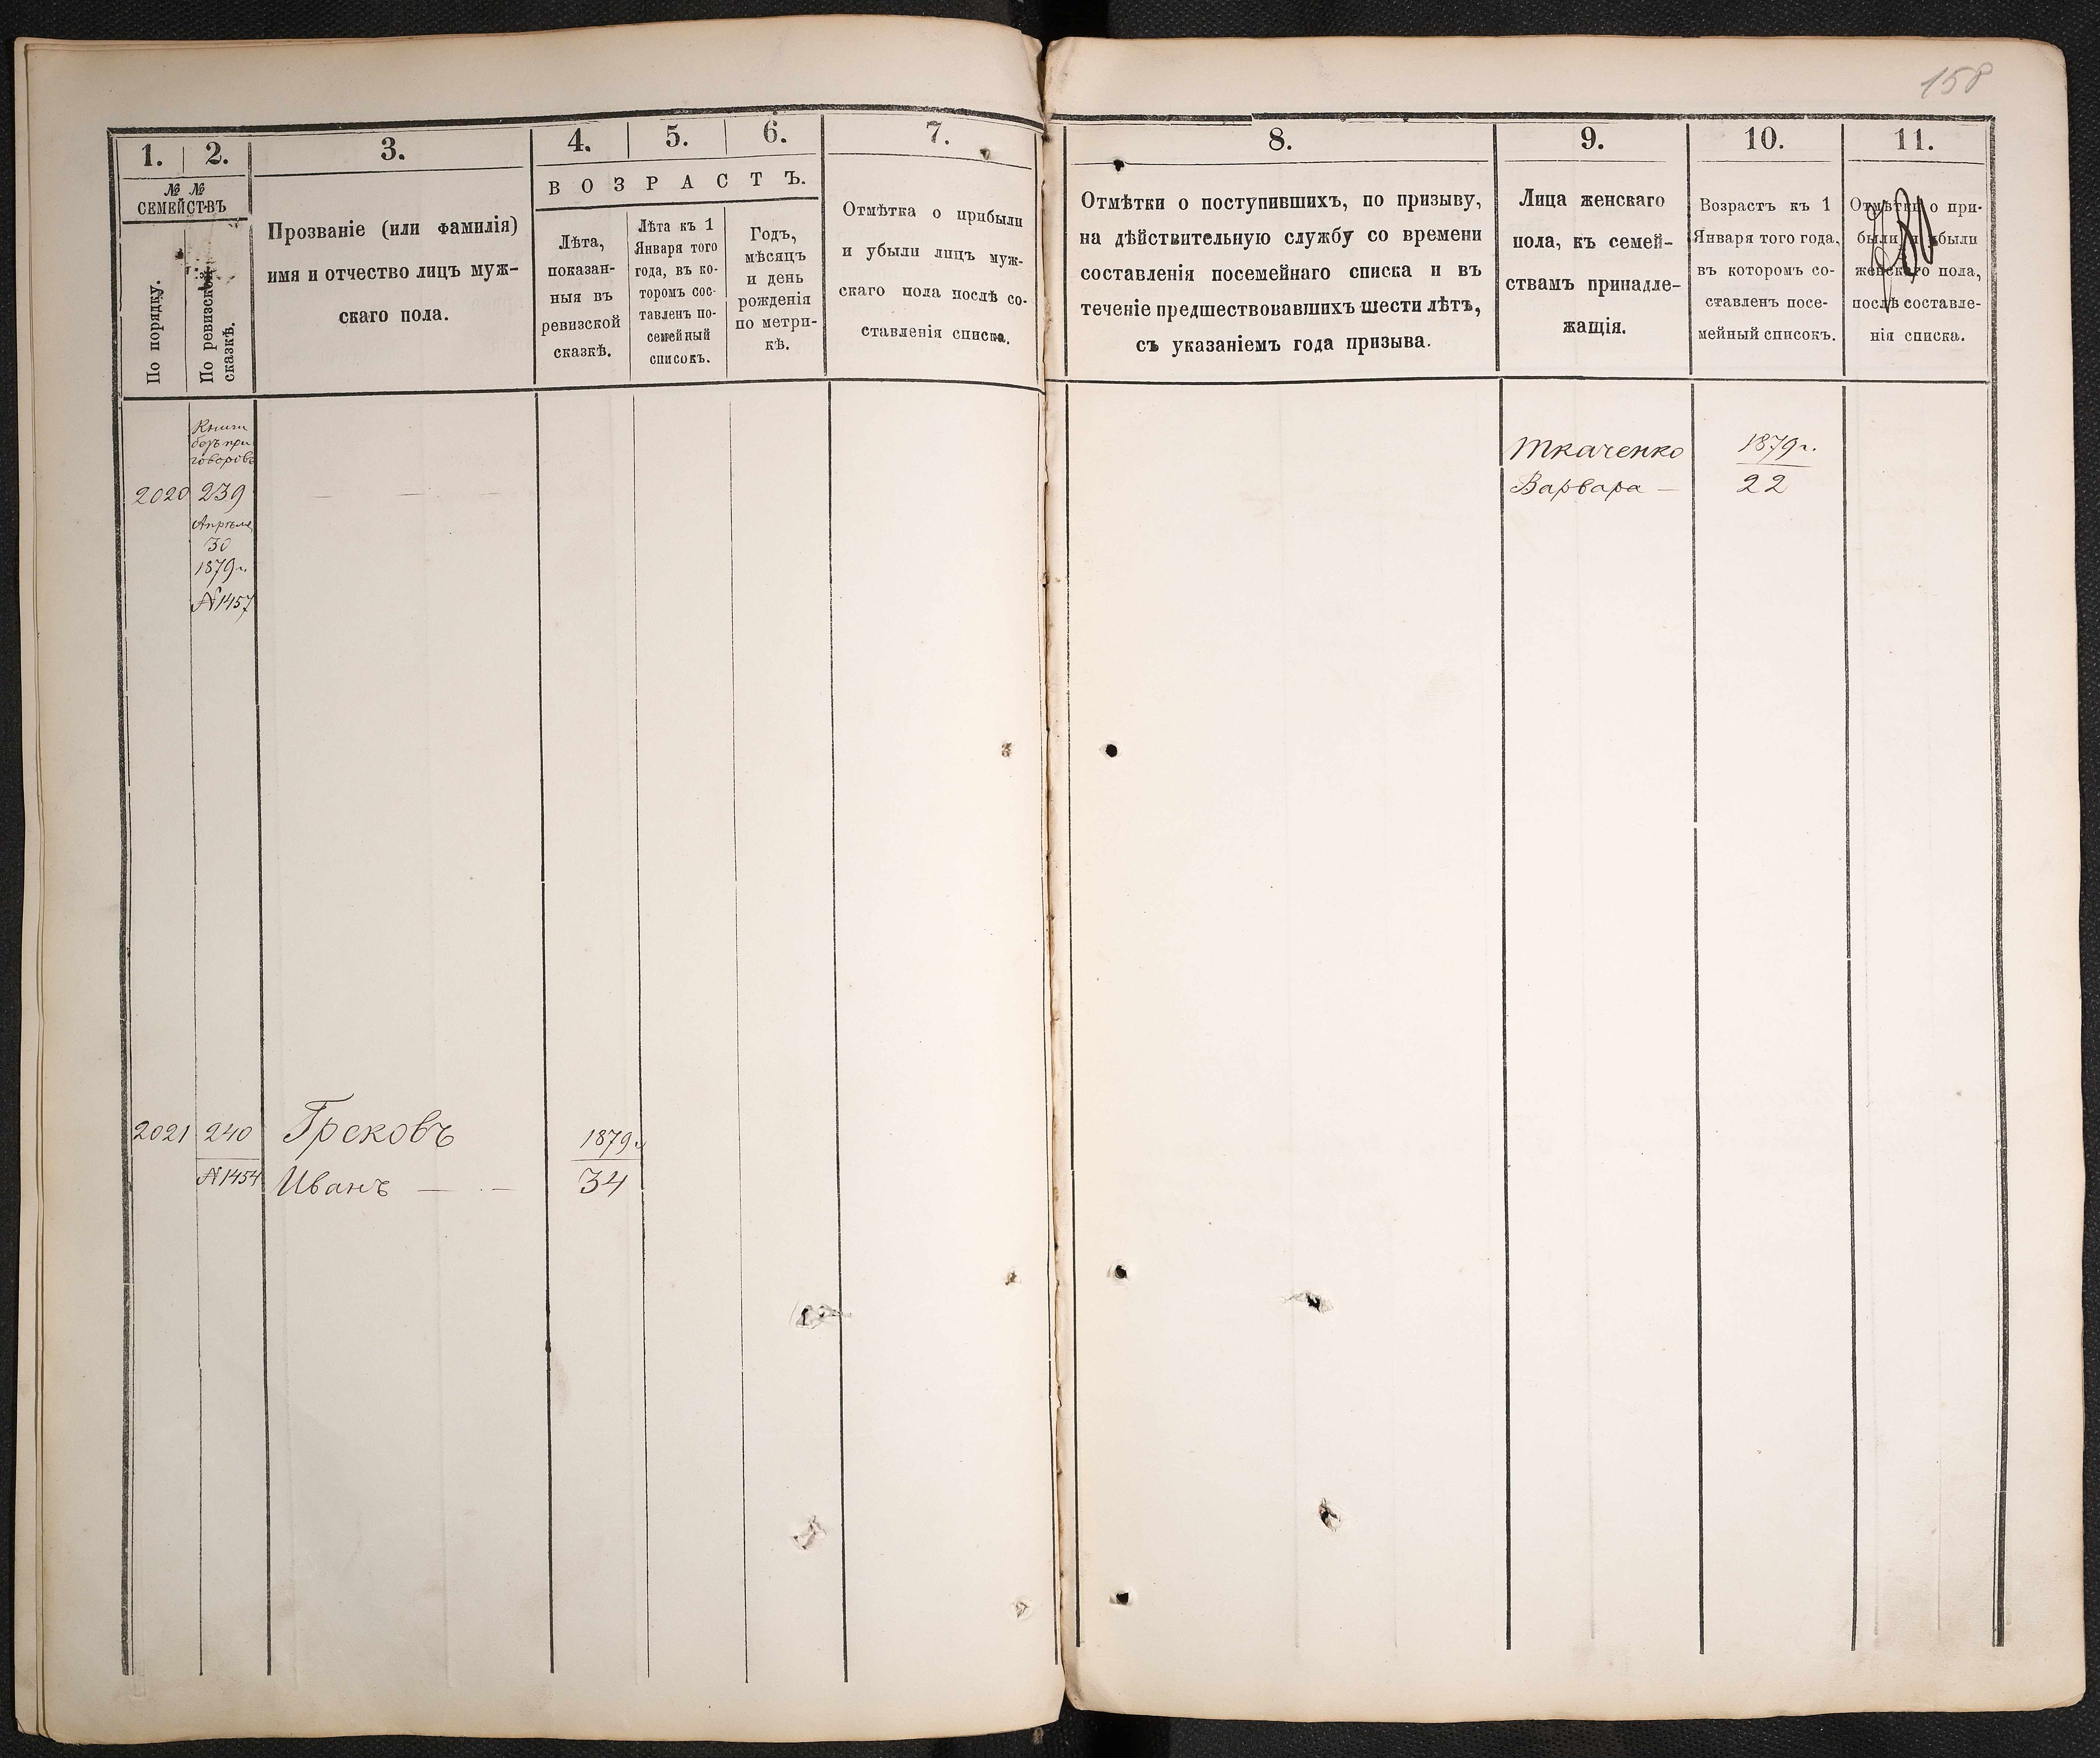 158
1. 2. 3. 4. 5. 6. 7.
№ №
СЕМЕЙСТВЪ
По порядку.
По ревизской
сказкѣ.
Прозваніе (или фамилія)
имя и отчество лицъ муж-
скаго пола.
ВОЗРАСТЪ.
Лѣта,
показан-
ныя въ
ревизской
сказкѣ.
Лѣта къ 1
Января того
года, въ ко-
торомъ сос-
тавленъ по-
семейный
списокъ.
Годъ,
мѣсяцъ
и день
рожденія
по метри-
кѣ.
Отмѣтка о прибыли
и убыли лицъ муж-
скаго пола послѣ со-
ставленія списка.
8. 9. 10. 11.
Отмѣтки о поступившихъ, по призыву,
на дѣйствительную службу со времени
составленія посемейнаго списка и въ
теченіе предшествовавшихъ шести лѣтъ,
съ указаніемъ года призыва.
Лица женскаго
пола, къ семей-
ствамъ принадле-
жащія.
Возрастъ къ 1
Января того года,
въ которомъ со-
ставленъ посе-
мейный списокъ.
Отмѣтки о при-
были и убыли
женскаго пола,
послѣ составле-
нія списка.
Книги
безъ при
говоровъ
2020 239 — — —
Апрѣля
30
1879 г.
№ 1457
Ткаченко 1879 г.
Варвара — 22
2021 240 Грековъ 1879 г.
№ 1454 Иванъ — — 34